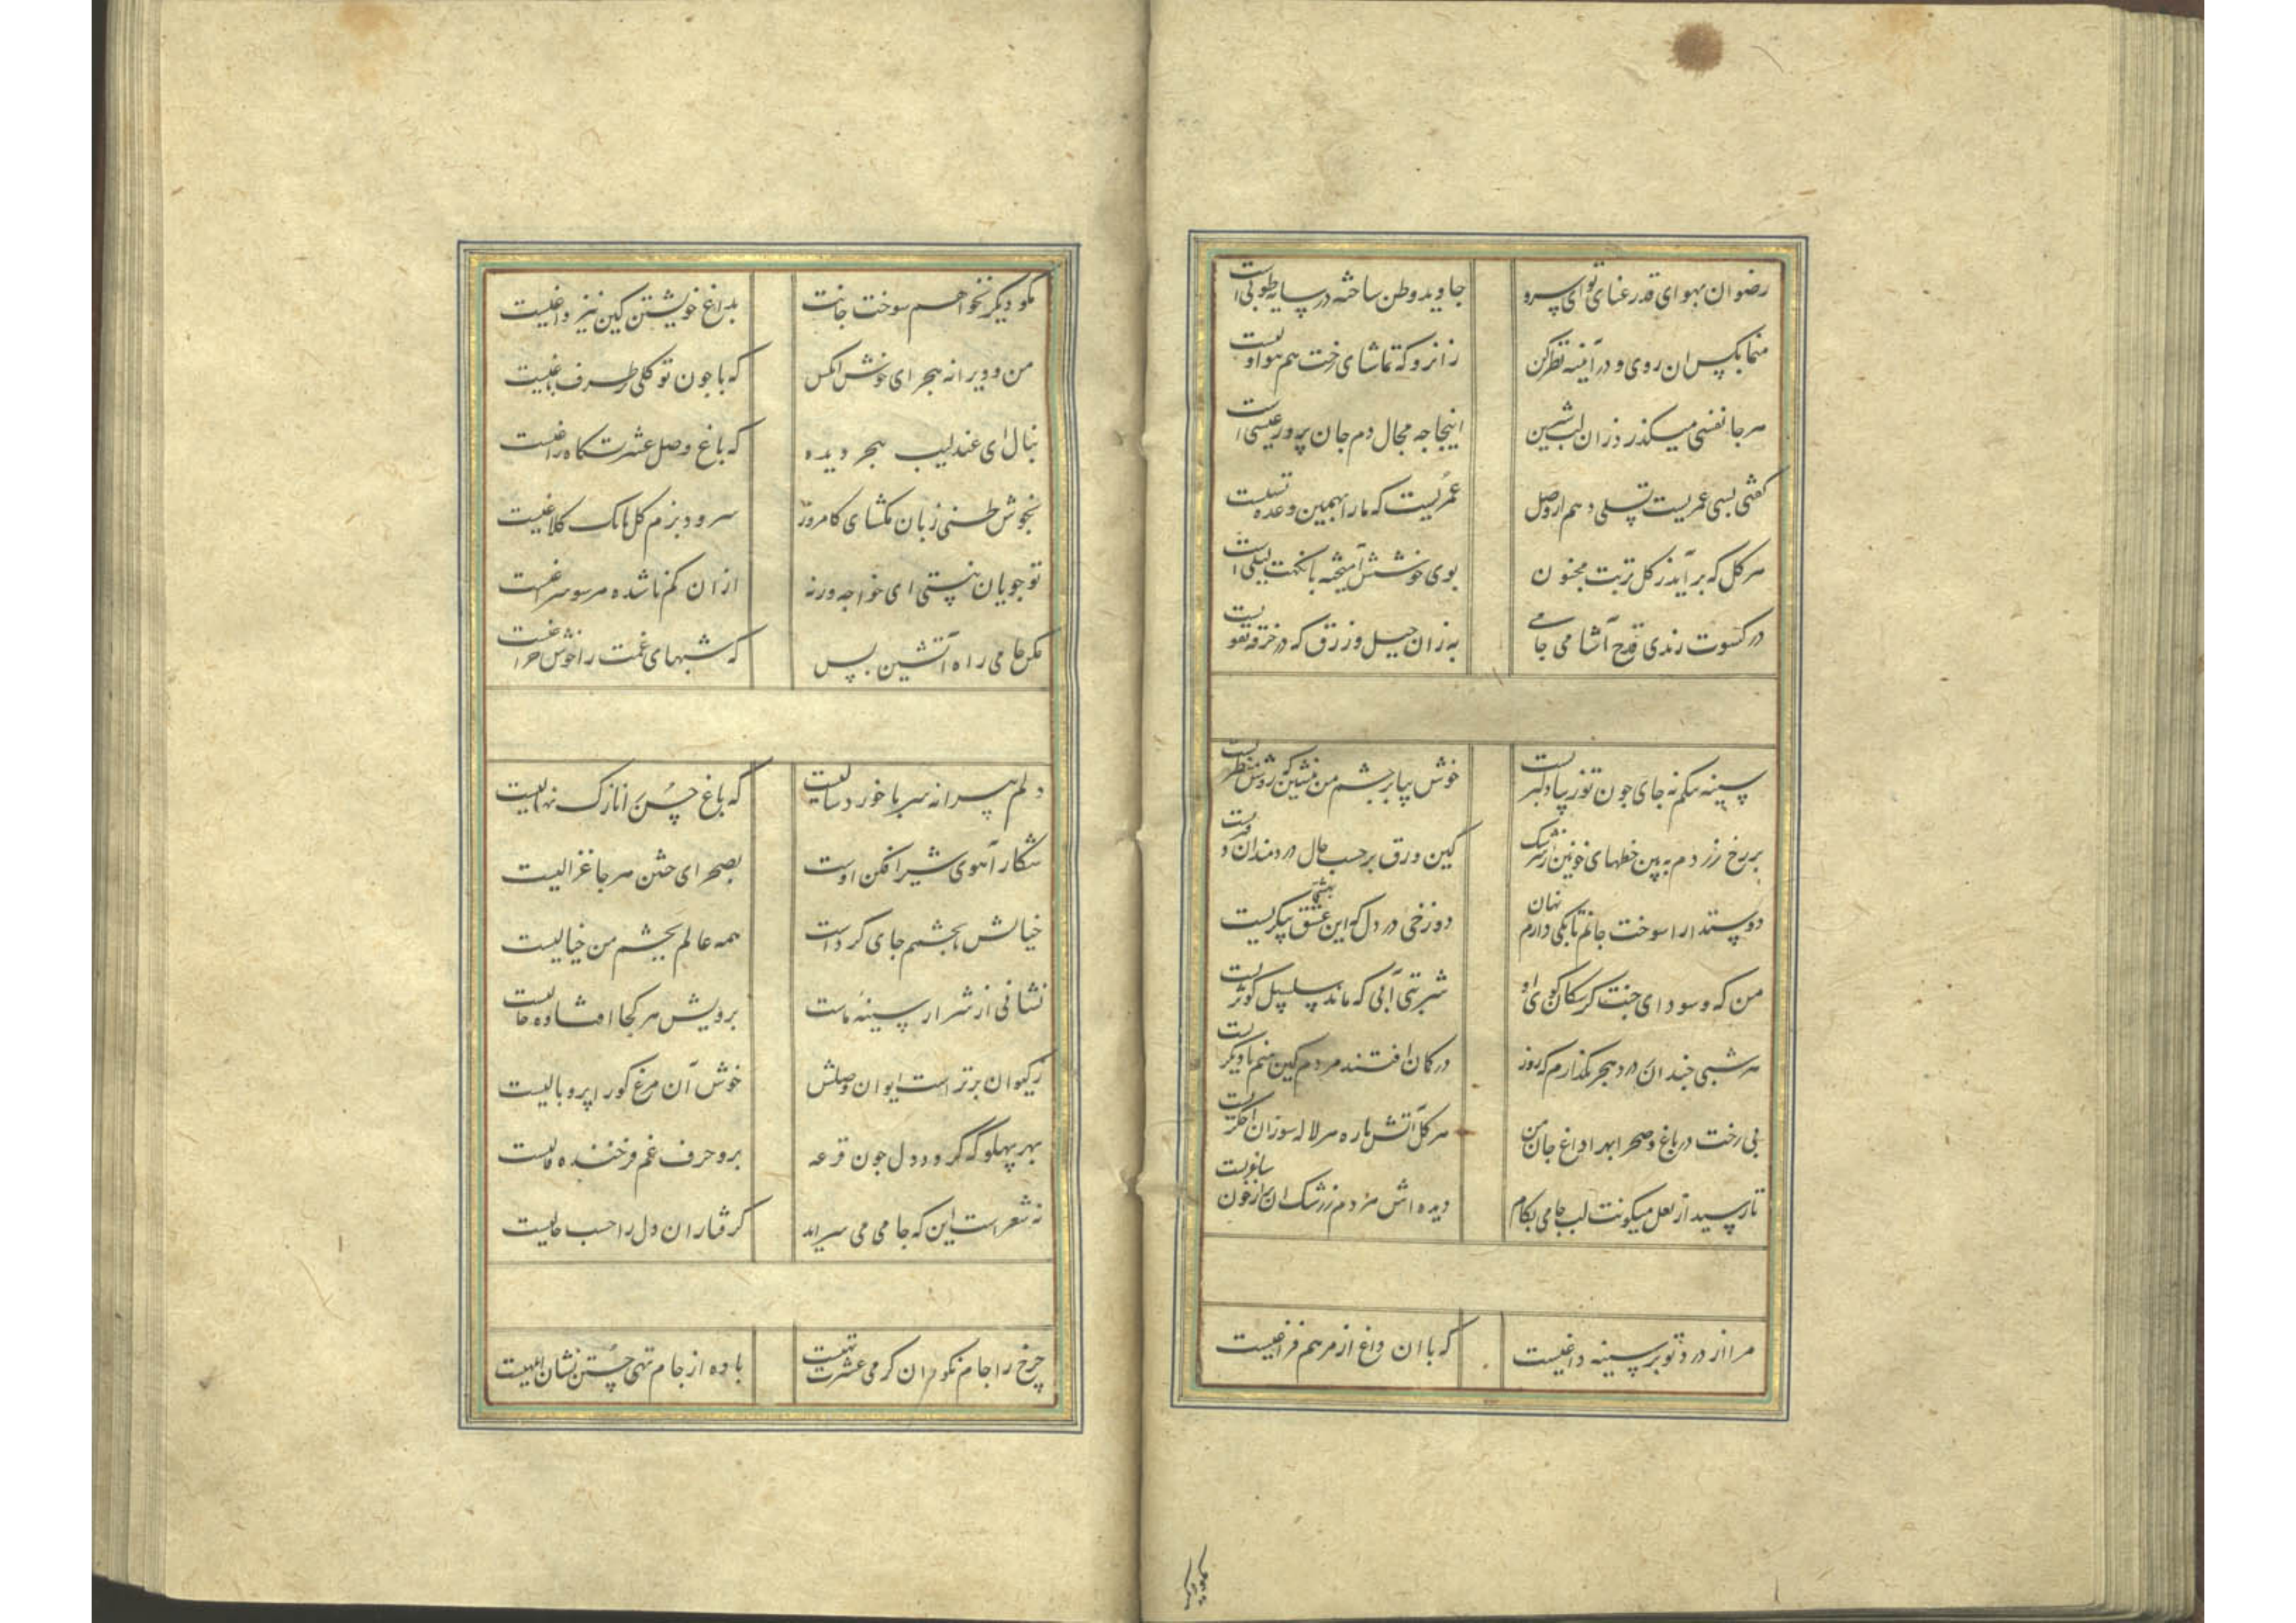 رضوان بهوای قد رعنای تو ای سرو جاوید وطن ساخته در سایه طوبی است
منما بکس ان روی و در آینه نظر کن زانرو که تماشای رخت هم هوا
هر جا نفسی میگذرد زان لب شیرین اینجا چه مجال دم جان پرور عیسی است
کفتی بسی عمریست تسلی دهم از وصل عمریست که ما را بهمین وعده تسلیست
هر کل که برآید ز کل تربت مجنون بوی خوشش آمیخته با نکهت لیلی است
در کسوت رندی قدح آشامی جامی به زان حیل و زرق که در خرقه تقویست
سینه میکم نه جای چون تو زیبا دلبریست خوش بیا بر چشم من بنشین که روشن منظریست
بر رخ زردم ببین خطهای خونین از سرشک کین ورق بر حسب حال دردمندان دفتریست
دوستدارا سوخت جانم تا بکی دارم نهان دوزخی در دل که این عشق بهشتی پیکریست
من که و سودای جنت کز سکان کوی او شربتی آبی که ماند سلسبیل کوثریست
هر شبی چندان در درد هجر بکدازم که روز در کمان افتند مردم کین منم یا دیکریست
بی رخت در باغ و صحرا بهر داغ جان من هر کل آتش پاره هر لاله سوزان اخکریست
تا رسید از لعل میکونت لب جامی بکام دیده اش هر دم ز رشک ان پر از خون ساغریست
مرا از درد تو بر سینه داغیست که با ان داغ از مرهم فراغیست
مکو دیکر نخواهم سوخت جانت بداغ خویشتن کین نیز داغیست
من و ویرانه هجر ای خوش انکس که با چون تو کلی طرف باغیست
بنال ای عندلیب هجر دیده که باغ وصل عشرتکاه زاغیست
بخوش طنی زبان مکشای کامروز سرود بزم کل بانک کلاغیست
تو جویان نیستی ای خواجه ورنه از ان کم ناشده هر سو سراغیست
مکن جامی ر اه آتشین بس که شبهای غمت را خوش چراغیست
دلم پیرانه سر با خورد سالیست که باغ حسن را نازک نهالیست
شکار آهوی شیر افکن اوست بصحرای ختن هر جا غزالیست
خیالش تا بچشمم جای کرد است همه عالم بچشم من خیالیست
نشانی از شرار سینه ماست برویش هر کجا افتاده خالیست
ز کیوان برتر است ایوان وصلش خوش آن مرغ کورا پر و بالیست
بهر پهلو که کردد دل چون قرعه برو حرف غم فرخنده فالیست
نه شعر است این که جامی می سراید کرفتاران دل را حسب حالیست
چرخ را جام نکون دان کز می عشرت تهیست باده از جام تهی جستن نشان ابلهیست